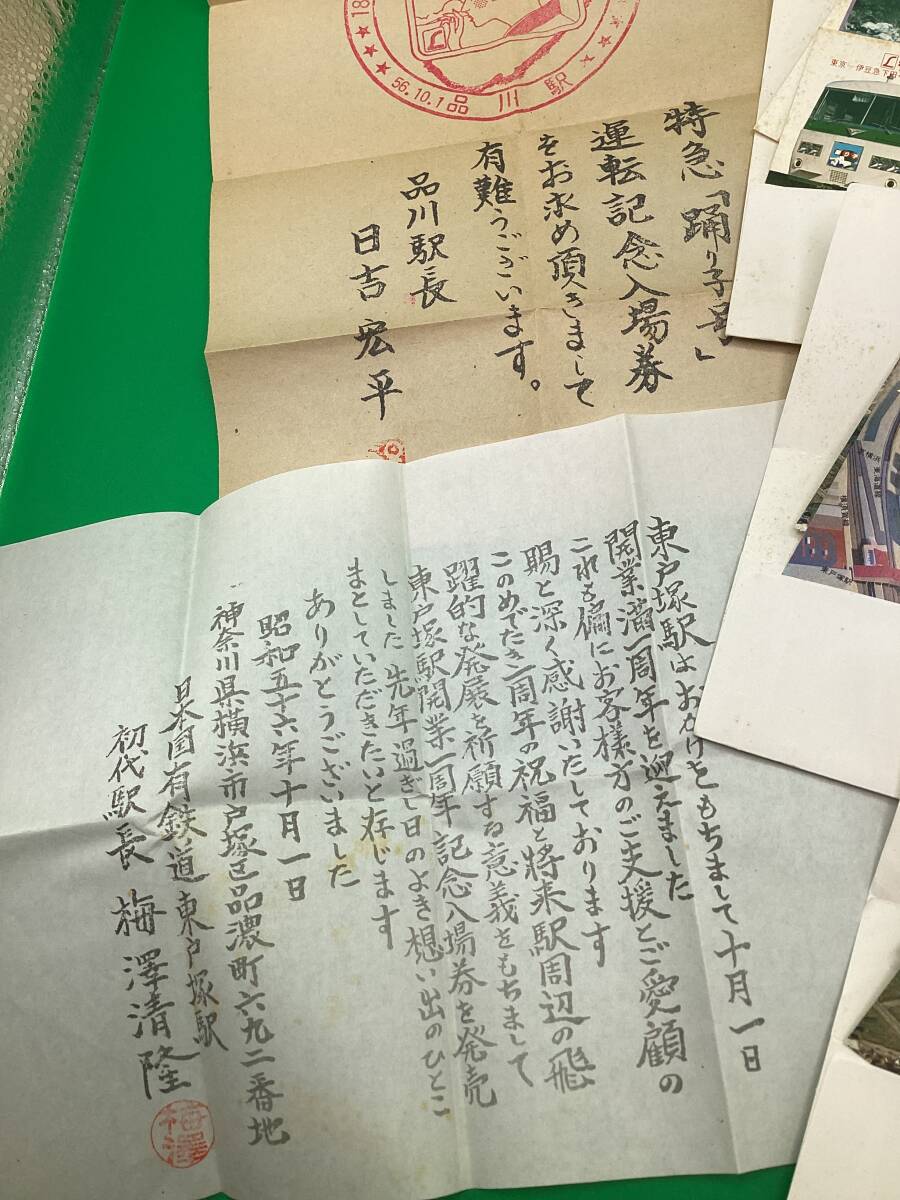 56.10.1 品川駅
特急「踊り子号」
運転記念入場券
をお求め頂きまして
有難うございます。
品川駅長
日吉宏平
東戸塚駅はおかげをもちまして十月一日
開業満一周年を迎えました
これも偏にお客様方のご支援とご愛顧の
賜と深く感謝いたしております
このめでたき一周年の祝福と将来駅周辺の飛
躍的な発展を祈願する意義をもちまして
東戸塚駅開業一周年記念入場券を発売
しました 先年過ぎし日のよき想い出のひとこ
まとしていただきたいと存じます
ありがとうございました
昭和五十六年十月一日
神奈川県横浜市戸塚区品濃町六九二番地
日本国有鉄道東戸塚駅
初代駅長 梅澤清隆
梅澤
東京―伊豆急下田
東戸塚駅